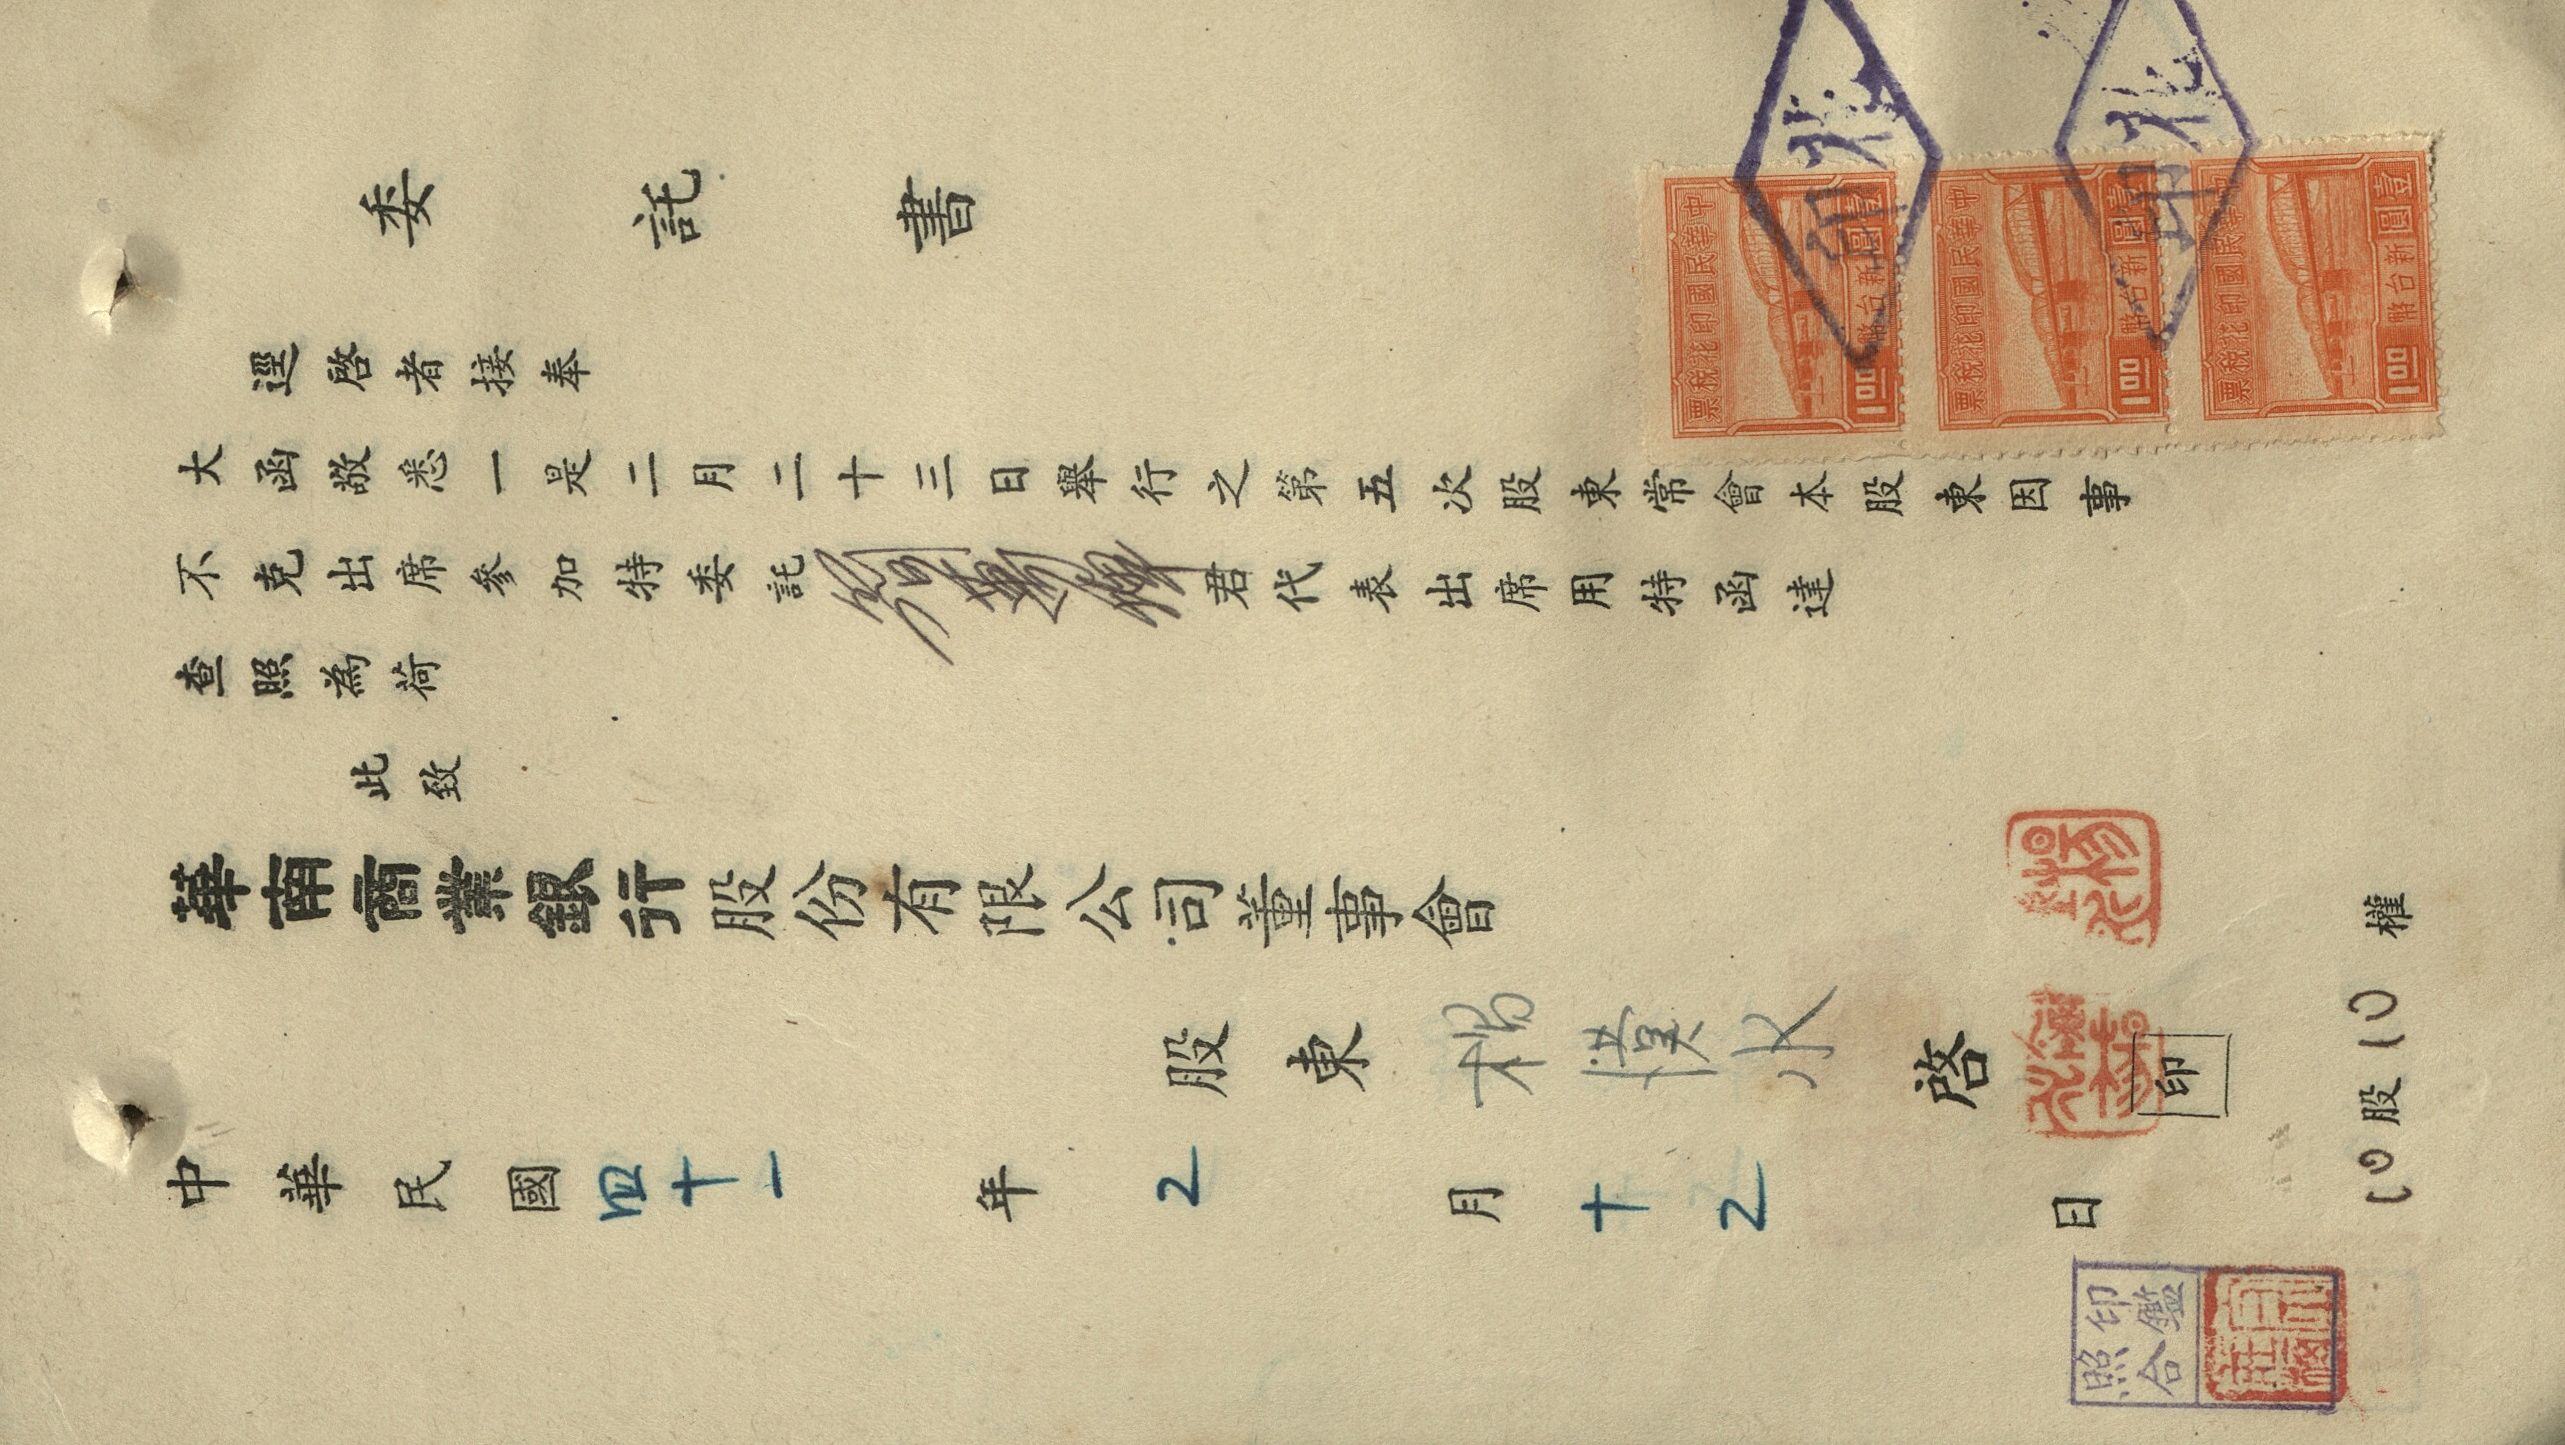 委託書
逕啓者接奉
大函敬悉一是二月二十三日舉行之第五次股東常會本股東因事
不克出席參加特委託 君代表出席用特函達
查照為荷
此致
華南商業銀行股份有限公司董事會
股東 水 啓 印
中華民國四十一年2月十2日
10股10權
中華民國印花稅票
壹圓 新台幣 1.00
中華民國印花稅票
壹圓 新台幣 1.00
中華民國印花稅票
壹圓 新台幣 1.00
印鑑
照合